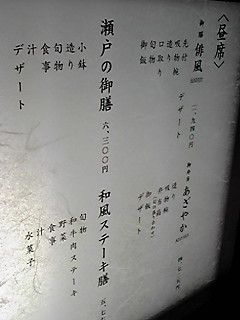 〈昼席〉
御膳 俳風
先付
吸物椀
造り
口取り
旬物
御飯
デザート
二、九四〇円
あざやか
造り
吸物椀
御飯
デザート
瀬戸の御膳
六、三〇〇円
小鉢
造り
旬物
食事
汁
デザート
和風ステーキ膳
旬物
和牛肉ステーキ
野菜
食事
汁
水菓子